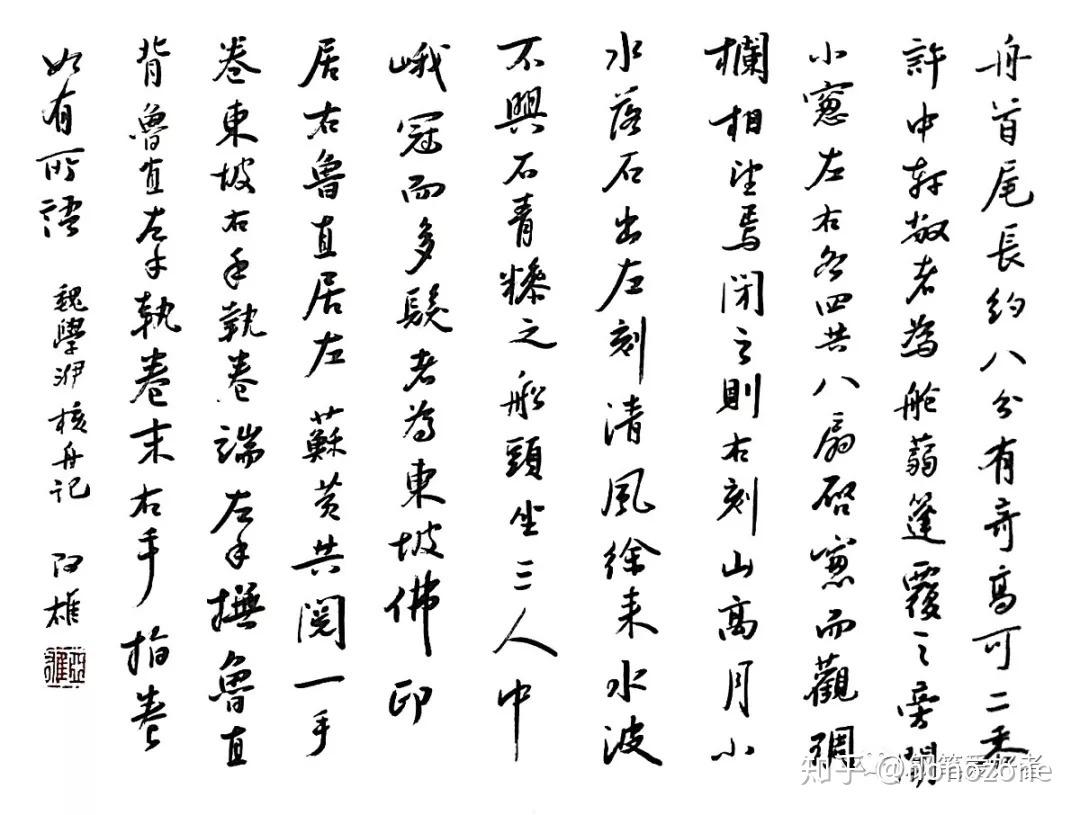 舟首尾長約八分有奇高可二黍
許中軒敞者為舱蒻篷覆之旁開
小窻左右各四共八扇启窻而觀雕
欄相望焉閉之則右刻山高月小
水落石出左刻清風徐来水波
不興石青糝之船頭坐三人中
峨冠而多髯者為東坡佛印
居右魯直居左蘇黄共閱一手
卷東坡右手執卷端左手撫魯直
背魯直左手執卷末右手指卷
如有所語 魏學洢核舟记 阿雄
知乎 @bonozone